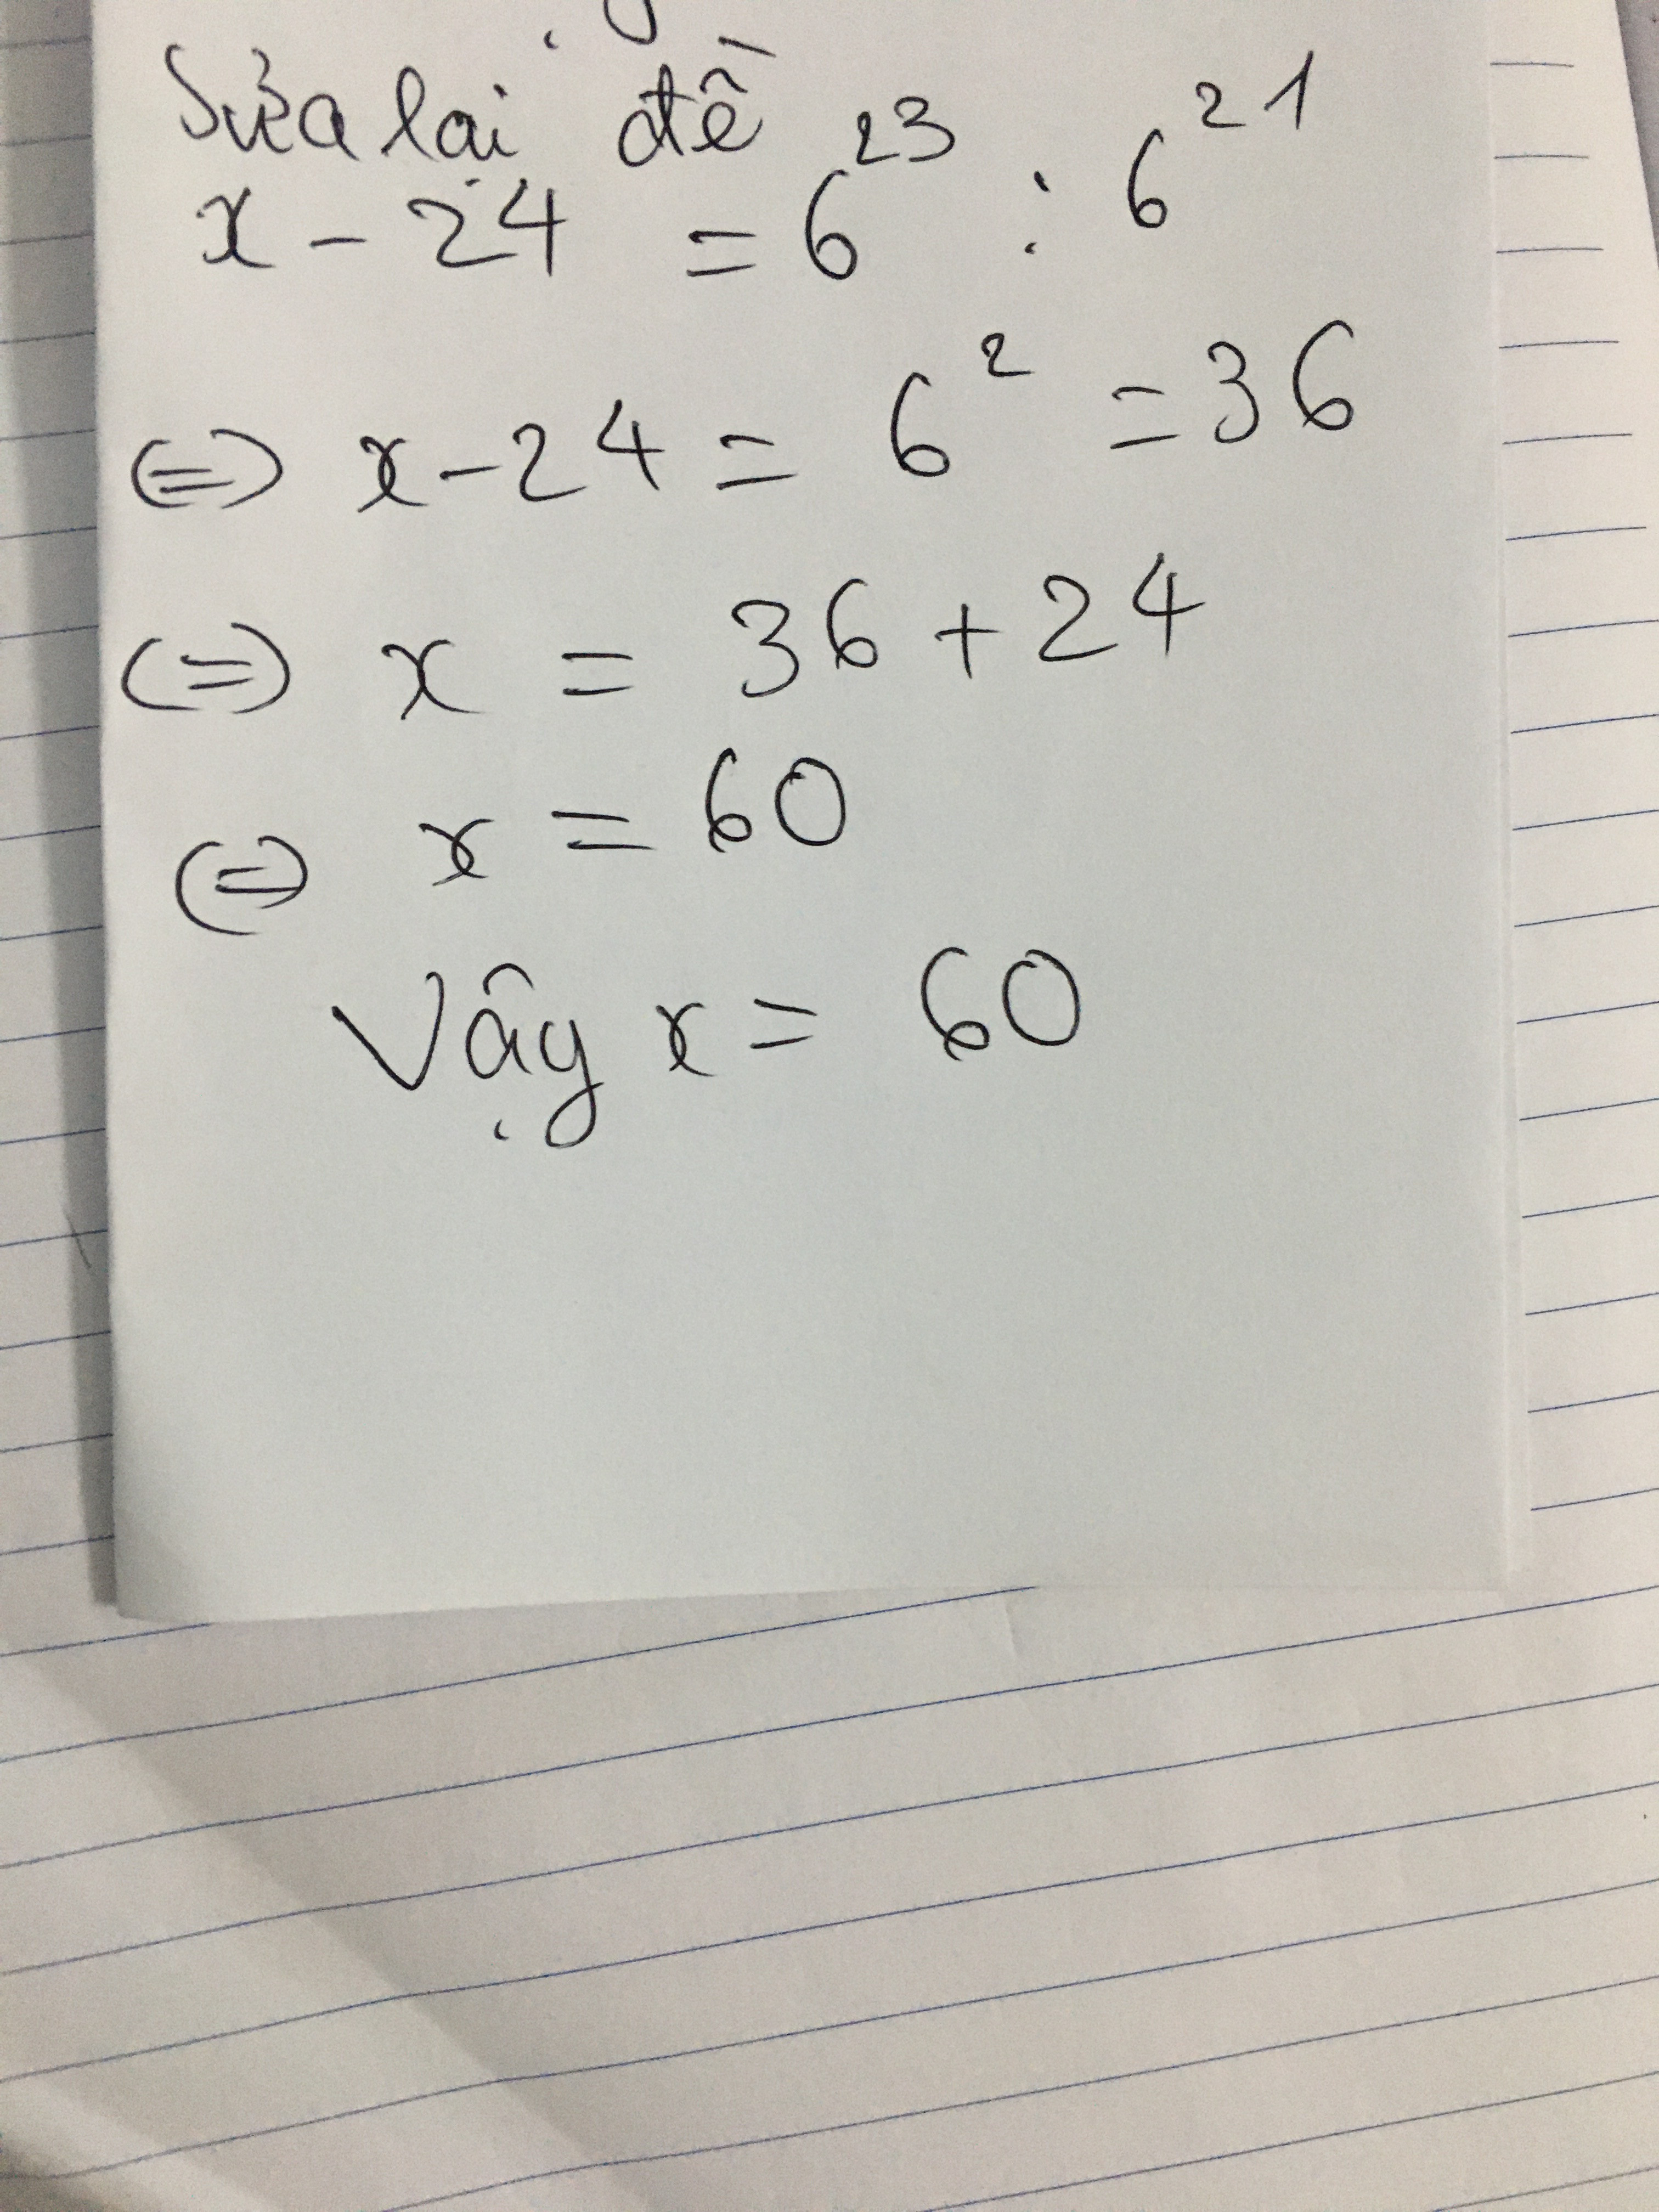 Sửa lại đề
x - 24 = 6²³ : 6²¹
(=) x - 24 = 6² = 36
(=) x = 36 + 24
(=) x = 60
Vậy x = 60